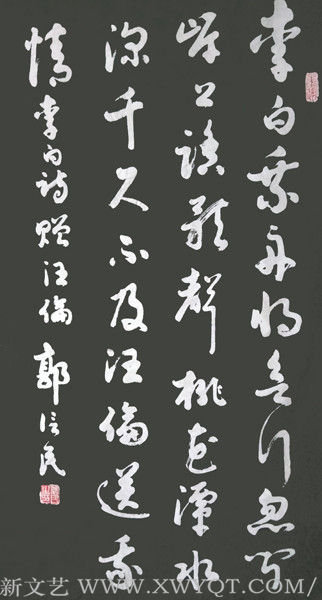 李白乘舟將欲行忽聞
岸上踏歌聲桃花潭水
深千尺不及汪倫送我
情 李白詩贈汪倫 郭信民
新文艺 WWW.XWYQT.COM/